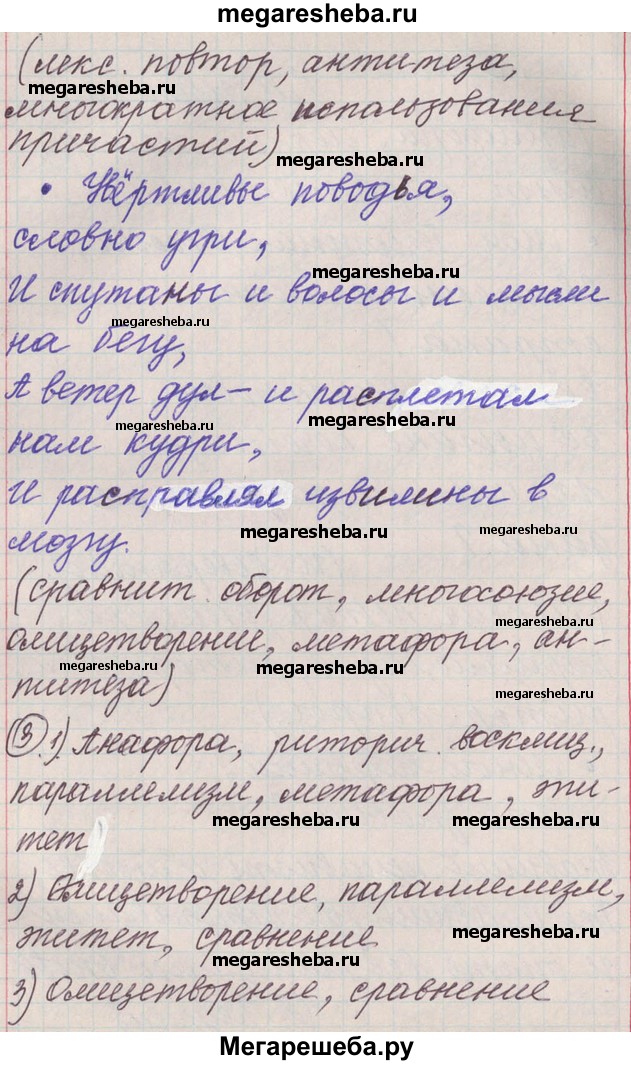 megaresheba.ru
(лекс. повтор, антитеза,
megaresheba.ru
megaresheba.ru
многократное использования
причастий)
megaresheba.ru
• Увёртливы поводья,
словно угри,
megaresheba.ru
И спутаны и волосы и мысли
megaresheba.ru
на бегу,
А ветер дул – и расплетал
megaresheba.ru
megaresheba.ru
нам кудри,
И расправлял извилины в
megaresheba.ru
megaresheba.ru
мозгу.
(сравнит. оборот, многосоюзие,
megaresheba.ru
олицетворение, метафора, ан-
megaresheba.ru
megaresheba.ru
титеза)
megaresheba.ru
③.1) Анафора, риторич. восклиц.,
параллелизм, метафора, эпи-
megaresheba.ru
megaresheba.ru
тет
2) Олицетворение, параллелизм,
эпитет, сравнение
megaresheba.ru
megaresheba.ru
3) Олицетворение, сравнение
Мегарешеба.ру